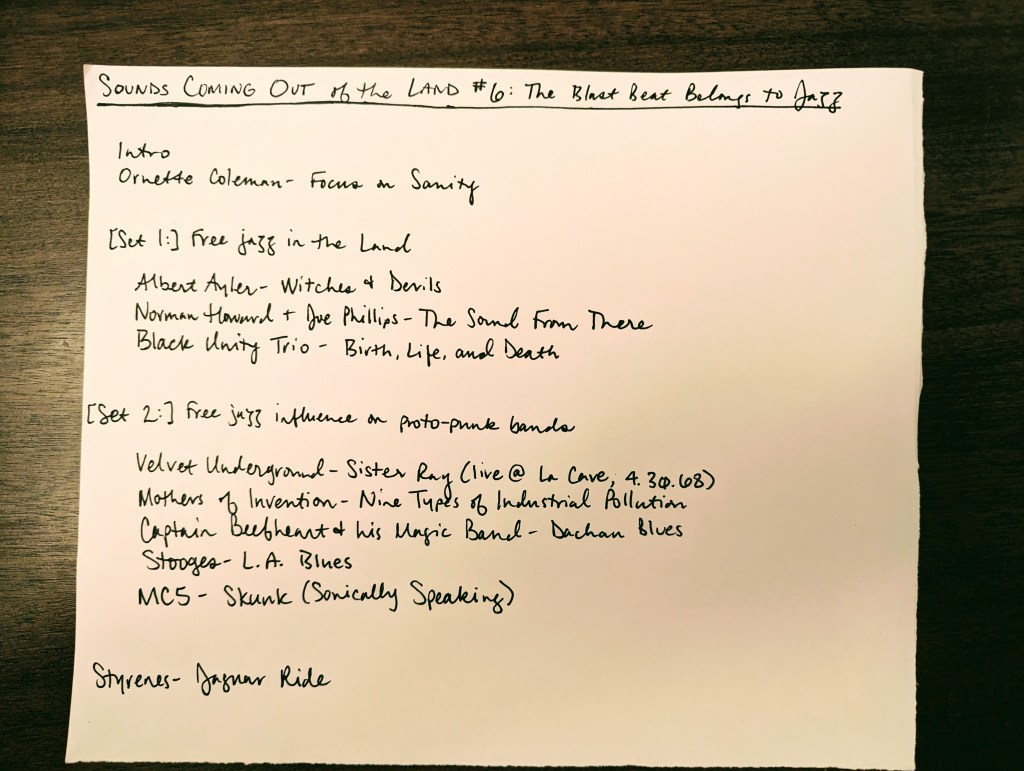 SOUNDS COMING OUT of the LAND #6: The Blast Beat Belongs to Jazz
Intro
Ornette Coleman - Focus on Sanity
[Set 1:] Free jazz in the Land
Albert Ayler - Witches & Devils
Norman Howard + Joe Phillips - The Sound From There
Black Unity Trio - Birth, Life, and Death
[Set 2:] Free jazz influence on proto-punk bands
Velvet Underground - Sister Ray (live @ La Cave, 4.30.68)
Mothers of Invention - Nine Types of Industrial Pollution
Captain Beefheart & his Magic Band - Dachau Blues
Stooges - L.A. Blues
MC5 - Skunk (Sonically Speaking)
Styrenes - Jaguar Ride